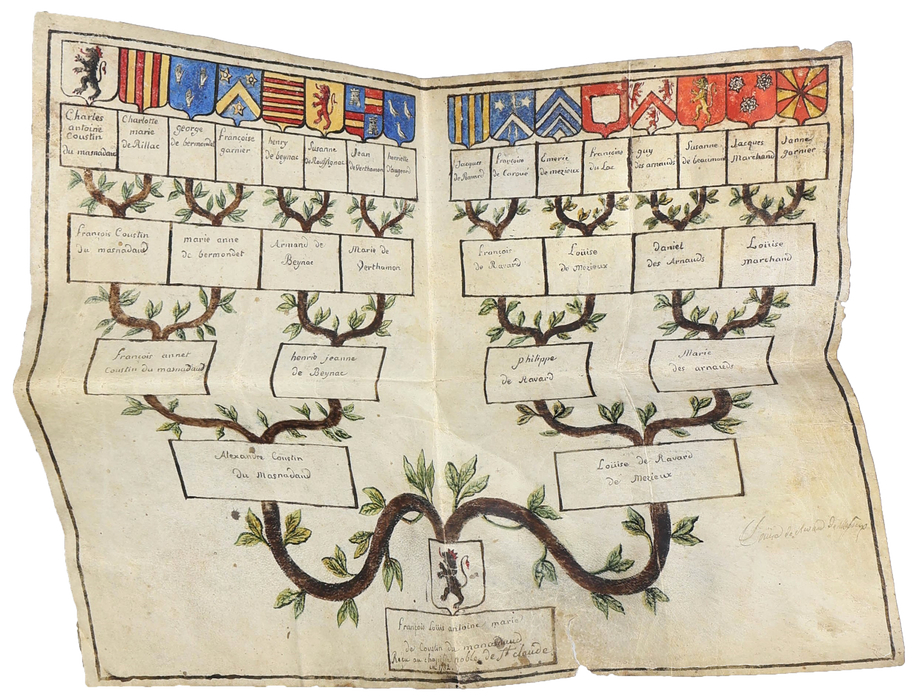 Charles
antoine
Coustin
du masnadaud
Charlotte
marie
de Rillac
george
de bermondet
françoise
garnier
henry
de beynac
Susanne
Jean
de Verthamon
henriette
Jacques
de Ravard
françoise
Emerie
de mezieux
françoise
du Lac
guy
des arnauds
Susanne
de beaumont
Jacques
Marchand
Janne
garnier
françois Coustin
du masnadaud
marie anne
de bermondet
Armand de
Beynac
Marie de
Verthamon
françois
de Ravard
Louise
de Mezieux
daniel
des Arnauds
Louise
marchand
françois annet
Coustin du masnadaud
henrie jeanne
de Beynac
philippe
de Ravard
Marie
des arnauds
Alexandre Coustin
du Masnadaud
Louise de Ravard
de Mezieux
françois Louis antoine marie
de Coustin du masnadaud
noble de St claude